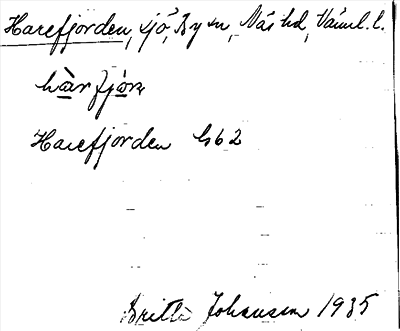 Harefjorden, sjö, By sn, Näs hd, Värml. l.
hàr fjòṇ
Harefjorden Gb 2
Britta Johansson 1935